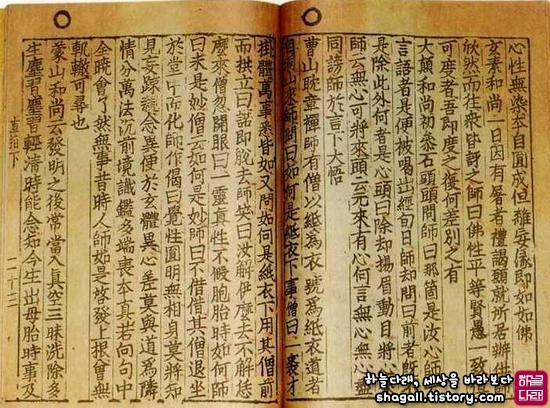 心性無染本自圓成但離妄緣即如如佛
玄素和尚一日因有屠者禮謁願就所居辨供
欣然而往衆皆訝之師曰佛性平等賢愚一致
可度者吾即度之復何差別之有
大顚和尚初參石頭頭問師曰那箇是汝心師
言語者是便被喝出經旬日師却問曰前者旣
是除此外何者是心頭曰除却揚眉動目將心
師云無心可將來頭云元來有心何言無心無心盡
同謗師於言下大悟
曹山耽章禪師有僧以紙爲衣號爲紙衣道者
自洞山來師問曰如何是紙衣下事僧曰一裘才
掛體萬事悉皆如又問如何是紙衣下用其僧前
而拱立曰諾即脫去師笑曰汝解伊麽去不解恁
麽來僧忽開眼曰一靈眞性不假胞胎時如何師
曰未是妙僧云如何是妙師曰不借借其僧退坐
於堂中而化師作偈曰覺性圓明無相身莫將知
見妄踈親念異便於玄體異心差莫與道爲隣
情分萬法沉前境識鑑多端喪本眞若向句中
全曉會了然無事昔時人師如是啓發上根曾無
軌轍可尋也
蒙山和尚云發明之後常當入眞空三昧洗除多
生塵習塵習輕淸時能念知今生出母胎時事及
直指下 二十二
하늘다래, 세상을 바라보다
shagall.tistory.com
하늘다래